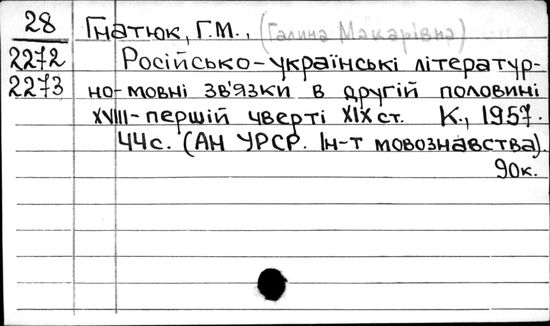 28
2272
2273
Гнатюк, Г.М., (Галина Макарівна)
Російсько-українські літератур-
но-мовні зв'язки в другій половині
XVIII-першій чверті XIX ст. К., 1957.
44с. (АН УРСР. Ін-т мовознавства).
90к.